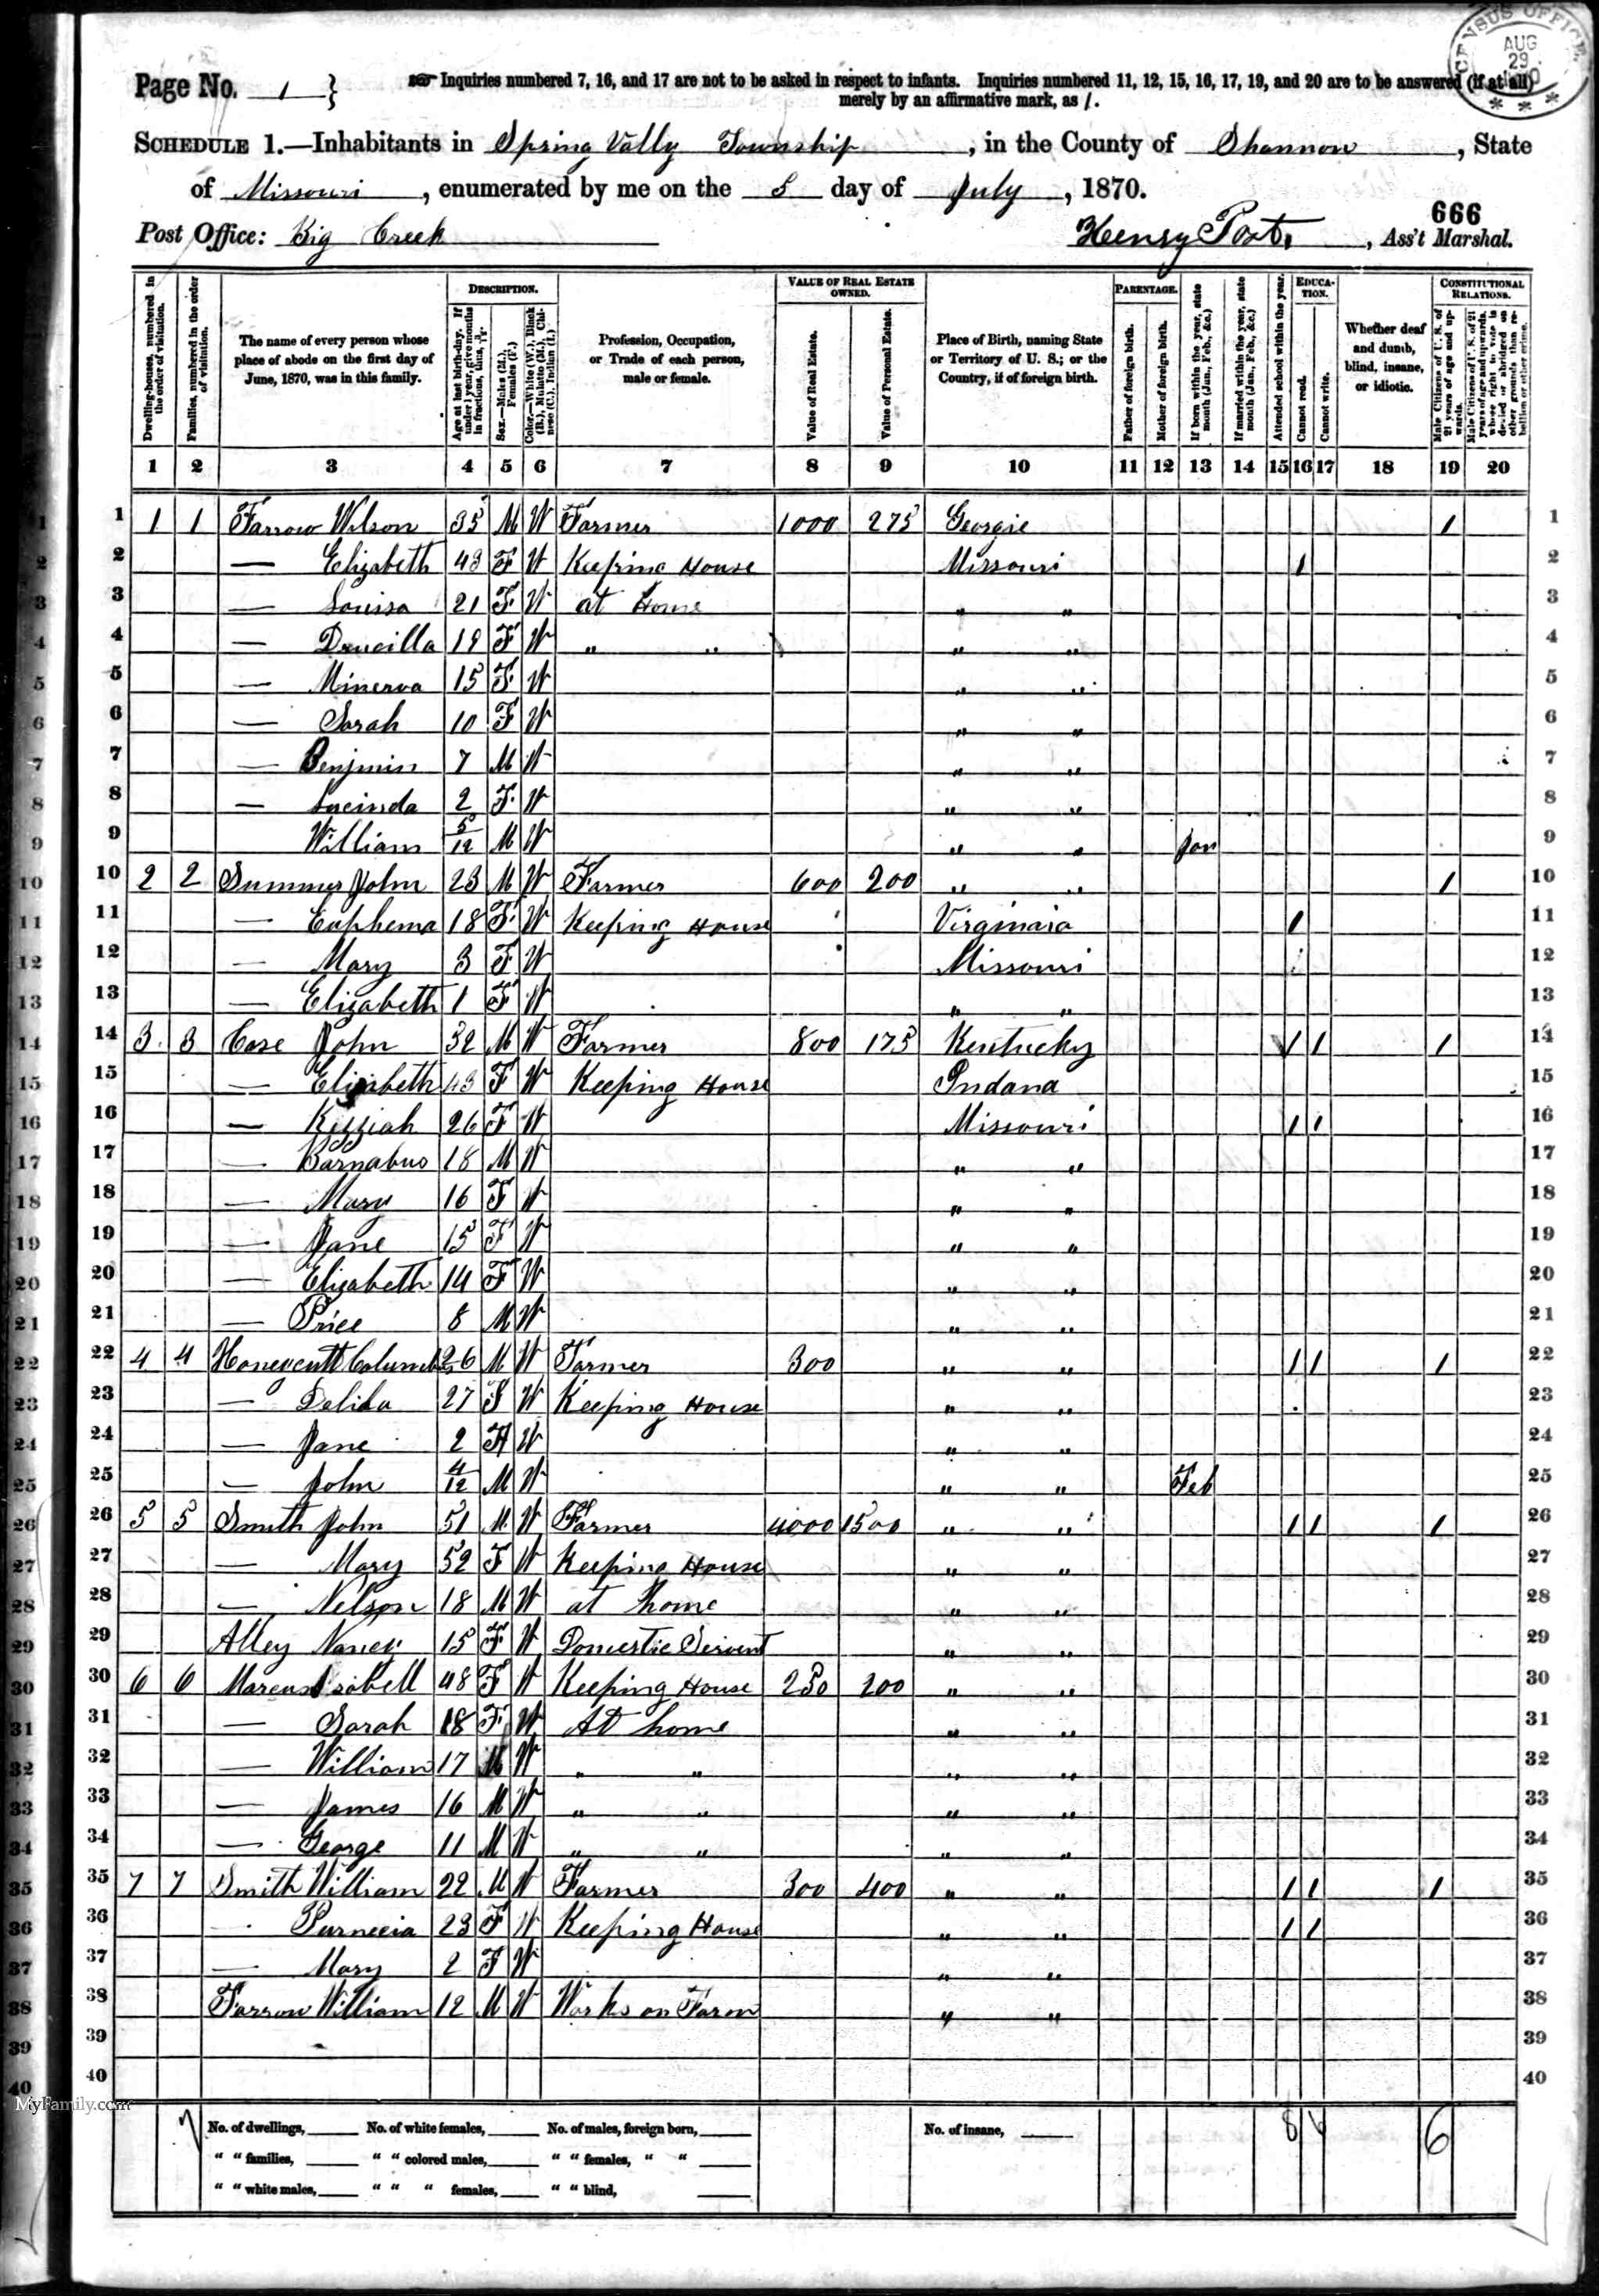 Page No. 1 }
Inquiries numbered 7, 16, and 17 are not to be asked in respect to infants. Inquiries numbered 11, 12, 15, 16, 17, 19, and 20 are to be answered (if at all)
merely by an affirmative mark, as /.
CENSUS OFFICE AUG 29
SCHEDULE 1.—Inhabitants in Spring Vally Township, in the County of Shannon, State
of Missouri, enumerated by me on the 5 day of July, 1870.
666
Post Office: Big Creek Henry , Ass't Marshal.
Dwelling-houses, numbered in the order of visitation.
Families, numbered in the order of visitation.
The name of every person whose place of abode on the first day of June, 1870, was in this family.
DESCRIPTION.
Age at last birth-day. If under 1 year, give months in fractions, thus, 3/12.
Sex.—Males (M.), Females (F.)
Color.—White (W.), Black (B.), Mulatto (M.), Chinese (C.), Indian (I.)
Profession, Occupation, or Trade of each person, male or female.
VALUE OF REAL ESTATE OWNED.
Value of Real Estate.
Value of Personal Estate.
Place of Birth, naming State or Territory of U. S.; or the Country, if of foreign birth.
PARENTAGE.
Father of foreign birth.
Mother of foreign birth.
If born within the year, state month (Jan., Feb., &c.)
If married within the year, state month (Jan., Feb., &c.)
Attended school within the year.
EDUCATION.
Cannot read.
Cannot write.
Whether deaf and dumb, blind, insane, or idiotic.
CONSTITUTIONAL RELATIONS.
Male Citizens of U. S. of 21 years of age and upwards.
Male Citizens of U. S. of 21 years of age and upwards, whose right to vote is denied or abridged on other grounds than rebellion or other crime.
1 2 3 4 5 6 7 8 9 10 11 12 13 14 15 16 17 18 19 20
1 1 1 Farrow Wilson 35 M W Farmer 1000 275 Georgie / 1
2 — Elizabeth 43 F W Keeping House Missouri / 2
3 — Louisa 21 F W at Home " " 3
4 — Drucilla 19 F W " " " " 4
5 — Minerva 15 F W " " 5
6 — Sarah 10 F W " " 6
7 — Benjmin 7 M W " " 7
8 — Lucinda 2 F W " " 8
9 William 5/12 M W " " Jan 9
10 2 2 Summer John 23 M W Farmer 600 200 " " / 10
11 — Euphema 18 F W Keeping House Virginaia / 11
12 — Mary 3 F W Missouri 12
13 — Elizabeth 1 F W " " 13
14 3 3 Case John 32 M W Farmer 800 175 Kentucky / / / 14
15 — Elizabeth 43 F W Keeping House Indana 15
16 — Kizziah 26 F W Missouri / / 16
17 — Barnabus 18 M W " " 17
18 — Mary 16 F W " " 18
19 — Jane 15 F W " " 19
20 — Elizabeth 14 F W " " 20
21 — Price 8 M W " " 21
22 4 4 Honeycutt Columbus 26 M W Farmer 300 " " / / / 22
23 — Delida 27 F W Keeping House " " 23
24 — Jane 2 F W " " 24
25 — John 4/12 M W " " Feb 25
26 5 5 Smith John 51 M W Farmer 4000 1500 " " / / / 26
27 — Mary 52 F W Keeping House " " 27
28 — Nelson 18 M W at home " " 28
29 Alley Nancy 15 F W Domestic Servent " " 29
30 6 6 Marcus Isabell 48 F W Keeping House 250 200 " " 30
31 — Sarah 18 F W At home " " 31
32 — William 17 M W " " " " 32
33 — James 16 M W " " " " 33
34 — George 11 M W " " " " 34
35 7 7 Smith William 22 M W Farmer 300 400 " " / / / 35
36 — Purnecia 23 F W Keeping House " " / / 36
37 — Mary 2 F W " " 37
38 Farrow William 12 M W Works on Farm " " 38
39 39
40 40
MyFamily.com
7 No. of dwellings, No. of white females, No. of males, foreign born, No. of insane, 8 6 6
" " families, " " colored males, " " females, " "
" " white males, " " " females, " " blind,